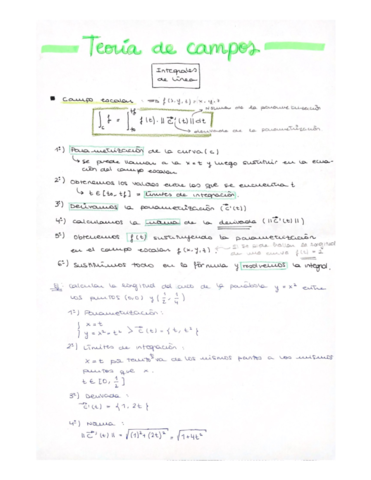 Teoría de campos
Integrales
de línea
Campo escalar: f(x,y,z) = x, y, z
∫ f = ∫ f(t) · ||c'(t)|| dt
norma de la parametrización
derivada de la parametrización
1º) Parametrización de la curva (c)
↳ se puede llamar a la x=t y luego sustituir en la ecua
ción del campo escalar.
2º) Obtenemos los valores entre los que se encuentra t
↳ t ∈ [t0, tf] = límites de integración
3º) Derivamos la parametrización (c'(t))
4º) calculamos la norma de la derivada (||c'(t)||)
5º) obtenemos f(t) sustituyendo la parametrización
en el campo escalar f(x,y,z)
de una curva f(t) = 1
6º) Sustituimos todo en la fórmula y resolvemos la integral.
calcular la longitud del arco de la parábola y = x² entre
los puntos (0,0) y (1/2, 1/4)
1º) Parametrización:
{ x = t
{ y = x² = t² > c(t) = {t, t²}
2º) Límites de integración:
x = t por tanto va de los mismos puntos a los mismos
puntos que x.
t ∈ [0, 1/2]
3º) Derivada:
c'(t) = {1, 2t}
4º) Norma:
||c'(t)|| = √(1)² + (2t)² = √1+4t²